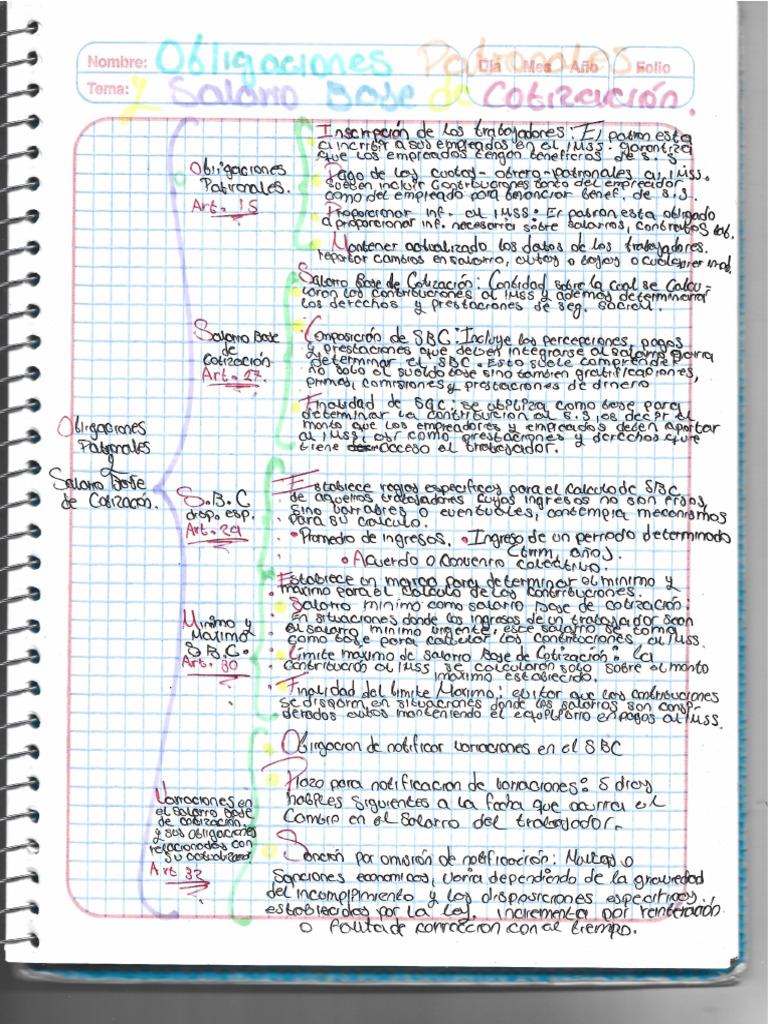 Nombre: Obligaciones Patronales Día Mes Año Folio
Tema: Y Salario Base de Cotización.
Obligaciones
Patronales
y
Salario Base
de Cotización.
Obligaciones
Patronales.
Art. 15
Inscripción de los trabajadores: El patron esta
a incribir a sus empleados en el IMSS. garantiza
que los empleados tengan beneficios de s. s.
Pago de las cuotas - obrero - patronales al IMSS.
suelen incluir contribuciones tanto del empleador
como del empleado para benef. de s.s.
Proporcionar inf. al IMSS: El patron esta obligado
a proporcionar inf. necesaria sobre salarios, contratos lab.
Mantener actualizado los datos de los trabajadores.
reportar cambios en salario, altas o bajas o cualquier
Salario Base
de
Cotización
Art. 27
Salario Base de Cotización: Cantidad sobre la cual se calcu-
laron las contribuciones al IMSS y además determinaria
los derechos y prestaciones de seg. social.
Composición de SBC: Incluye las percepciones, pagos
y prestaciones que deben integrarse al salario para
determinar el SBC. Esto suele comprender
no solo al sueldo base sino tambien gratificaciones,
primas, comisiones y prestaciones de dinero
Finalidad de SBC: se utiliza como base para
determinar la contribucion al s.s, es decir el
monto que los empleadores y empleados deben aportar
al IMSS, asi como prestaciones y derechos que
tiene acceso el trabajador.
S.B.C
disp. esp.
Art. 29
Establece reglas especificas para el calculo de SBC
de aquellos trabajadores cuyos ingresos no son fijos,
sino variables o eventuales, contempla mecanismos
para su calculo.
• Promedio de ingresos. • Ingreso de un periodo determinado
años).
• Acuerdo o Convenio colectivo.
Minimo y
Maximo
S.B.C.
Art. 30
Establece un marco para determinar el minimo y
máximo para el calculo de las contribuciones.
• Salario minimo como salario base de cotización:
en situaciones donde los ingresos de un trabajador sean
el salario minimo vigente, este salario se toma
como base para calcular las contribuciones al IMSS.
• Limite máximo de salario Base de Cotización: la
contribución al IMSS se calcularan solo sobre el monto
máximo establecido.
• Finalidad del limite Maximo: evitar que las contribuciones
se disparen, en situaciones donde los salarios son consi-
derados altos manteniendo el equilibrio en pagos al IMSS.
Variaciones en
el salario base
de cotización
y sus obligaciones
relacionados con
su
Art 32
Obligacion de notificar variaciones en el SBC
Plazo para notificacion de variaciones: 5 dias
habiles siguientes a la fecha que ocurra el
cambio en el salario del trabajador.
Sanción por omisión de notificación: Multas o
sanciones economicas, varia dependiendo de la gravedad
del incumplimiento y las disposiciones especificas
establecidas por la ley. incrementa por reiteración
o falta de corrección con el tiempo.